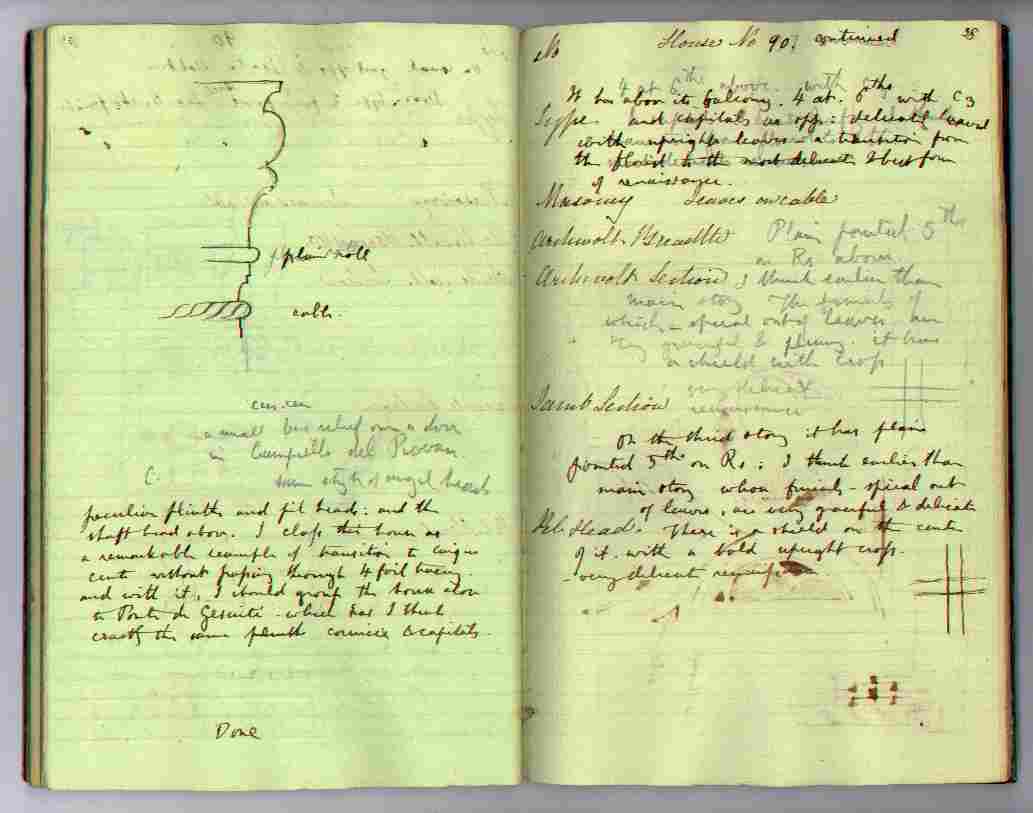 plain roll
cable.
a small bas relief over a door
in Campiello del Piovan
same style of angel heads
C.
peculiar plinths and fil heads: and the
shaft head above. I class this house as
a remarkable example of transition to cinque
cento without passing through 4 foil tracery.
and with it, I should group the house alon
to Ponte de Gesuiti - which has I think
exactly the same plinth cornice & capitals.
Done
No House No 90 continued
38
4 at 6th above. with
It has above its balcony. 4 at. 6ths with C3
Type. and capitals as opp: delicately leaved
with upright leaves - a transition from
the florid to the most delicate & best form
of renaissance.
Masonry Leaves on cable
Archivolt. Breadth Plain pointed 5ths
on Rs above.
Archivolt Section I think earlier than
main story The finials of
which - spiral out of leaves are
very graceful & plumy. it has
a shield with cross
very delicate
renaissance
Jamb Section
On the third story it has plain
pointed 5ths on Rs: I think earlier than
main story whose finials - spiral out
of leaves, are very graceful & delicate
Fil. Head. There is a shield on the centre
of it with a bold upright cross.
- very delicate renaissance